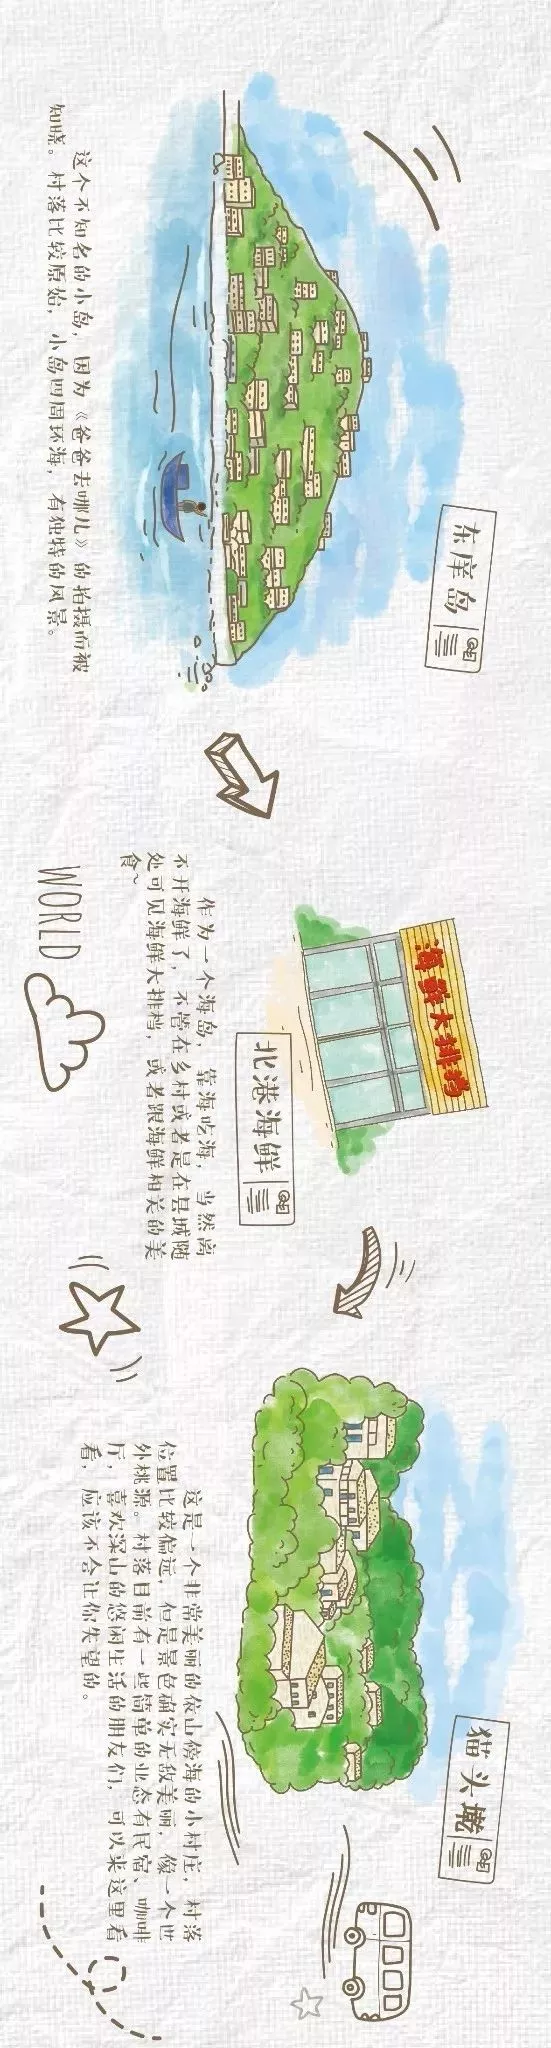 东庠岛
这个不知名的小岛，因为《爸爸去哪儿》的拍摄而被
知晓。村落比较原始，小岛四周环海，有独特的风景。
海鲜大排档
北港海鲜
作为一个海岛，靠海吃海，当然离
不开海鲜了，不管在乡村或者是在县城随
处可见海鲜大排档，或者跟海鲜相关的美
食~
WORLD
猫头墘
这是一个非常美丽的依山傍海的小村庄，村落
位置比较偏远，但是景色确实无敌美丽，像一个世
外桃源。村落目前有一些简单的业态有民宿、咖啡
厅，喜欢深山的悠闲生活的朋友们，可以来这里看
看，应该不会让你失望的。